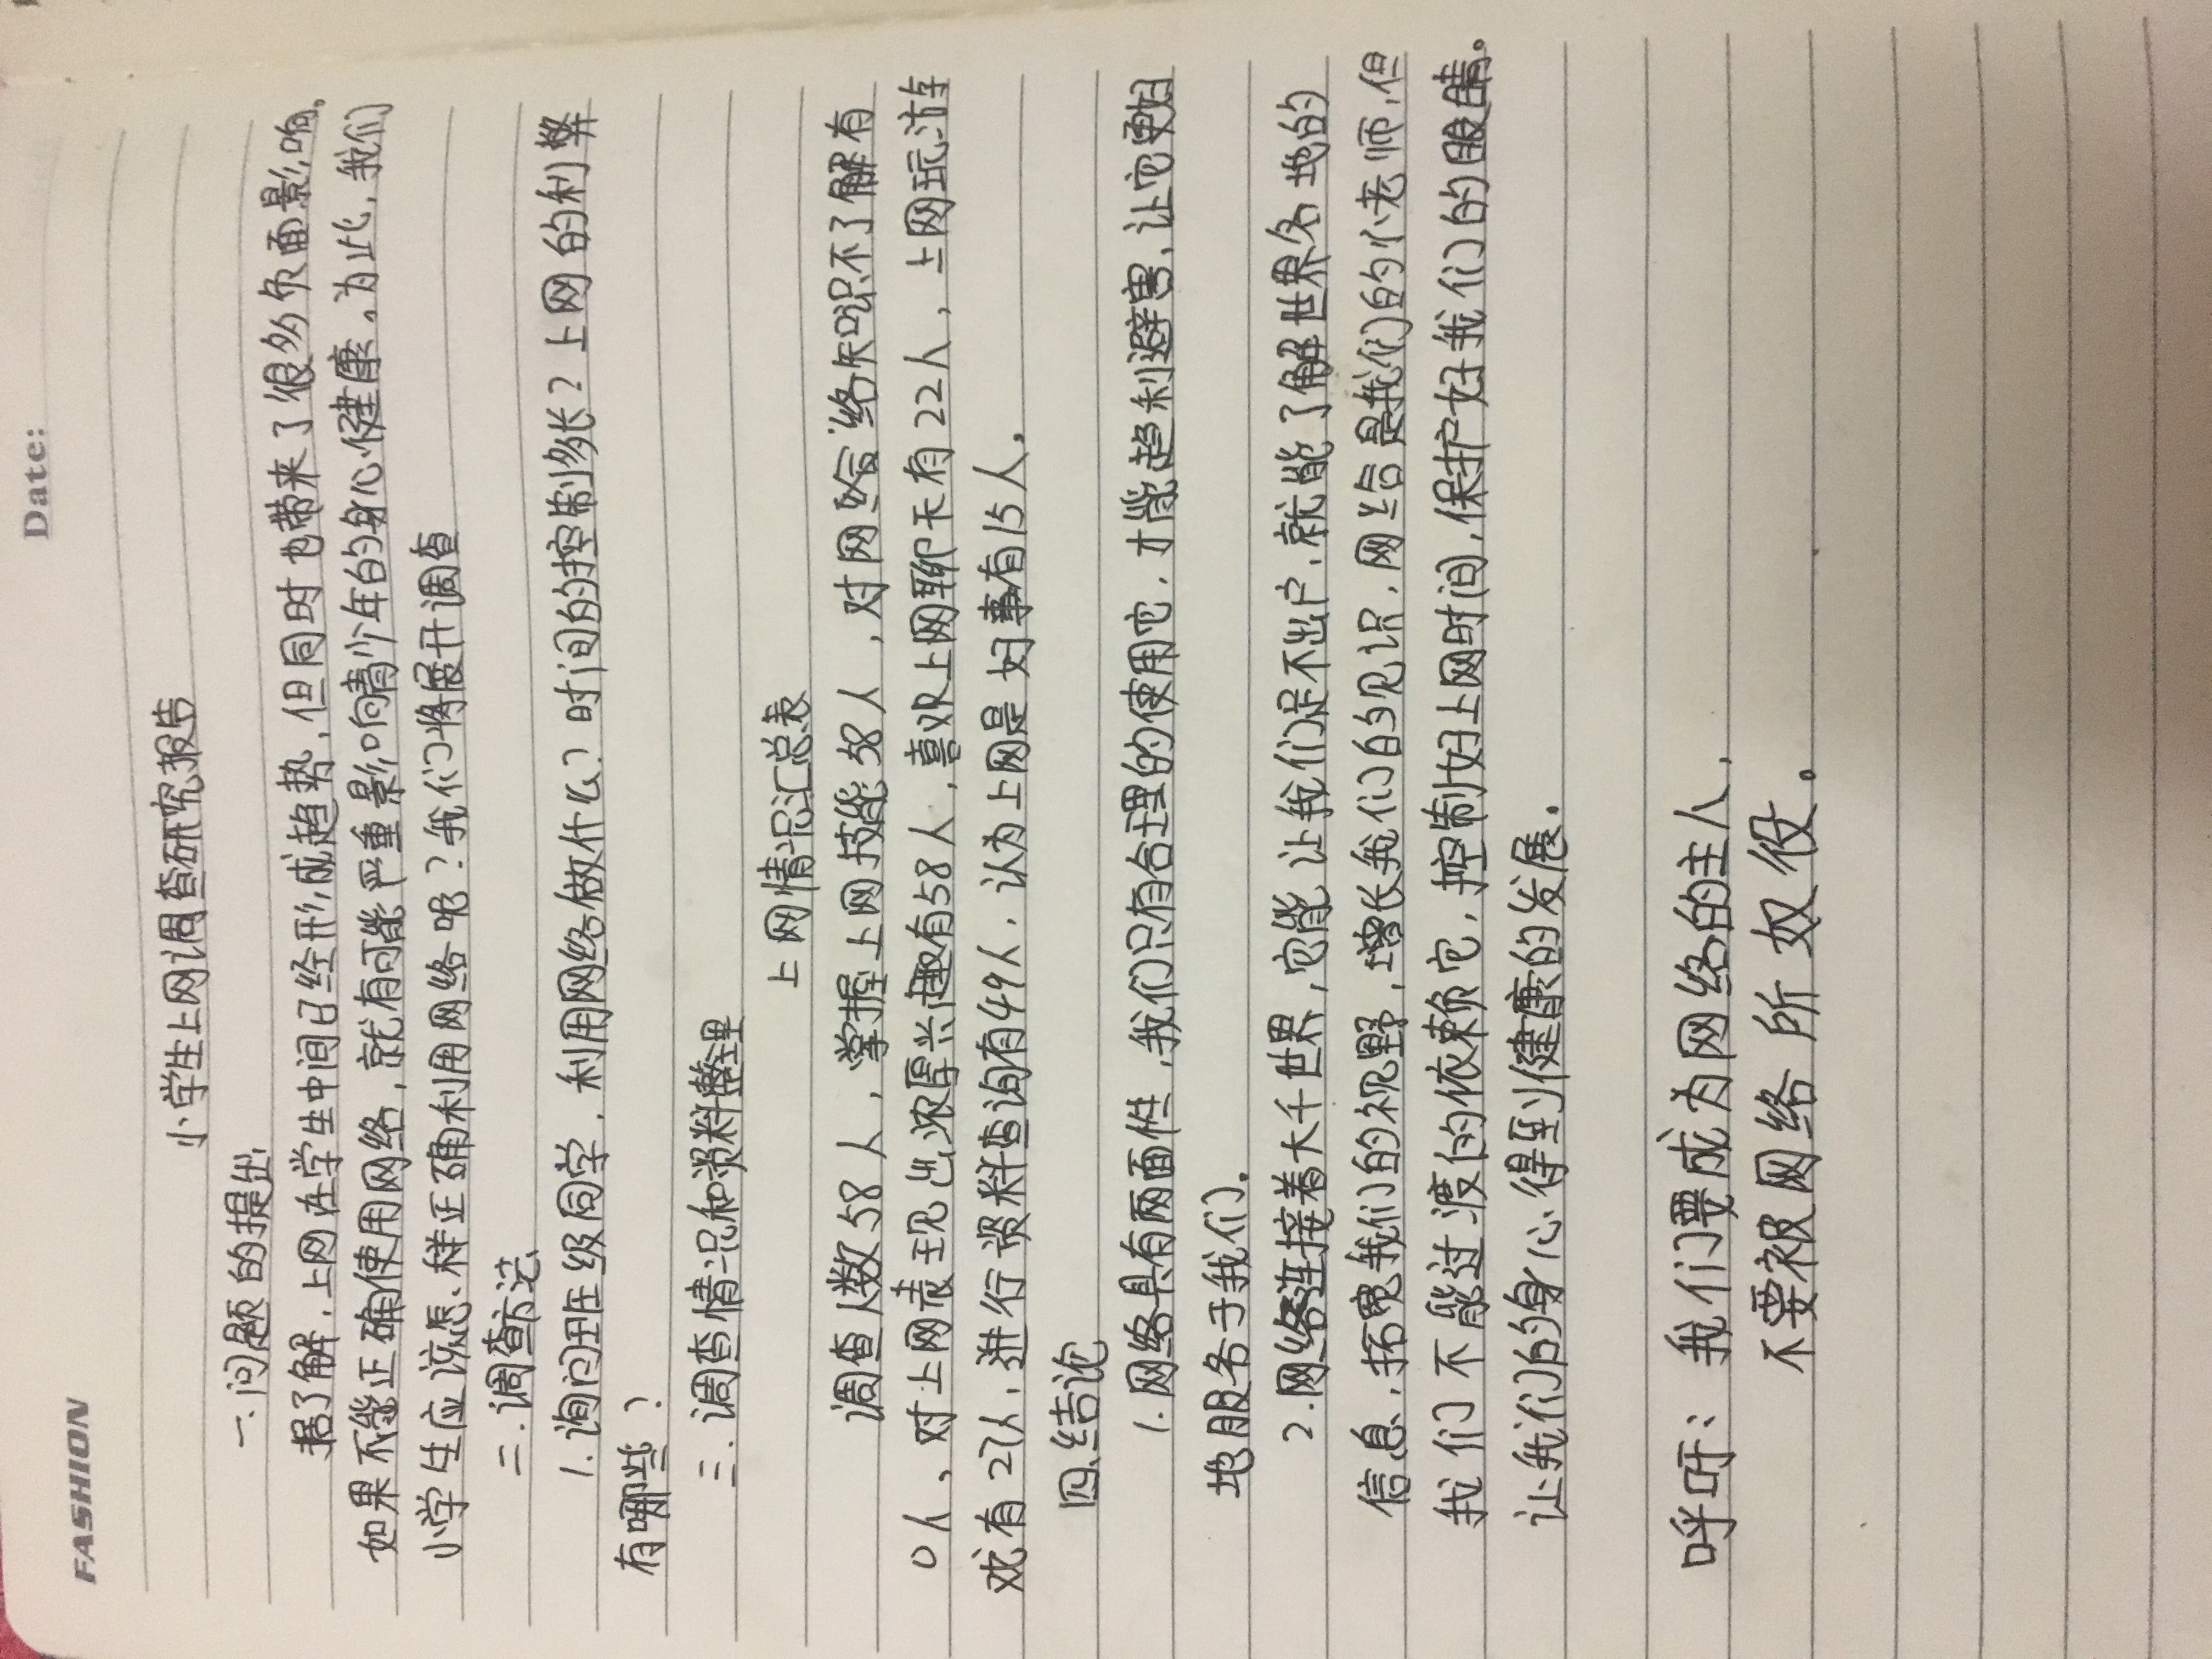 FASHION
Date:
小学生上网调查研究报告
一.问题的提出
据了解,上网在学生中间已经形成趋势,但同时也带来了很多负面影响。
如果不能正确使用网络,就有可能严重影响青少年的身心健康。为此,我们
小学生应该怎样正确利用网络呢?我们将展开调查
二.调查方法
1.询问班级同学,利用网络做什么?时间的控制多长?上网的利弊
有哪些?
三.调查情况和资料整理
上网情况汇总表
调查人数58人,掌握上网技能58人,对网络络知识不了解有
0人,对上网表现出浓厚兴趣有58人,喜欢上网聊天有22人,上网玩游
戏有27人,进行资料查询有49人,认为上网是好事有15人.
四.结论
1.网络具有两面性,我们只有合理的使用它,才能趋利避害,让它更好
地服务于我们.
2.网络连接着大千世界,它能让我们足不出户,就能了解世界各地的
信息,拓宽我们的视野,增长我们的见识,网络是我们的小老师,但
我们不能过渡的依赖它,控制好上网时间,保护好我们的眼睛。
让我们的身心得到健康的发展.
呼吁:我们要成为网络的主人,
不要被网络所奴役。